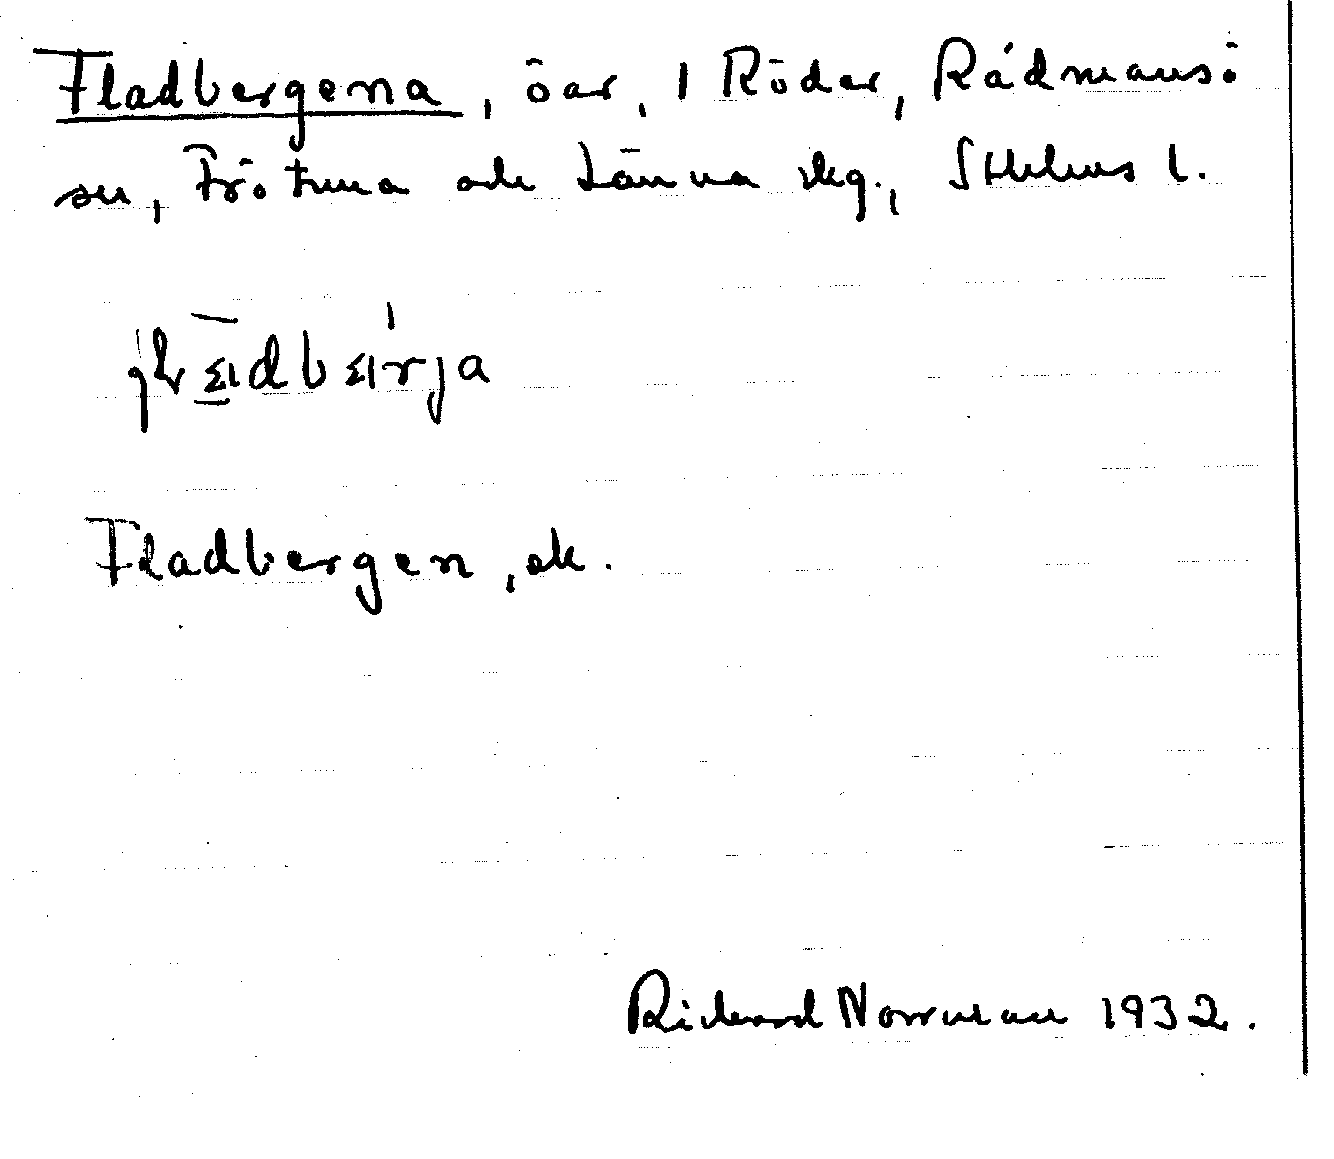 Fladbergena, öar, i Röder, Rådmansö
sn, Frötuna och Länna skg., Sthlms l.
Fladbergen, ek.
Rickard Norrman 1932.